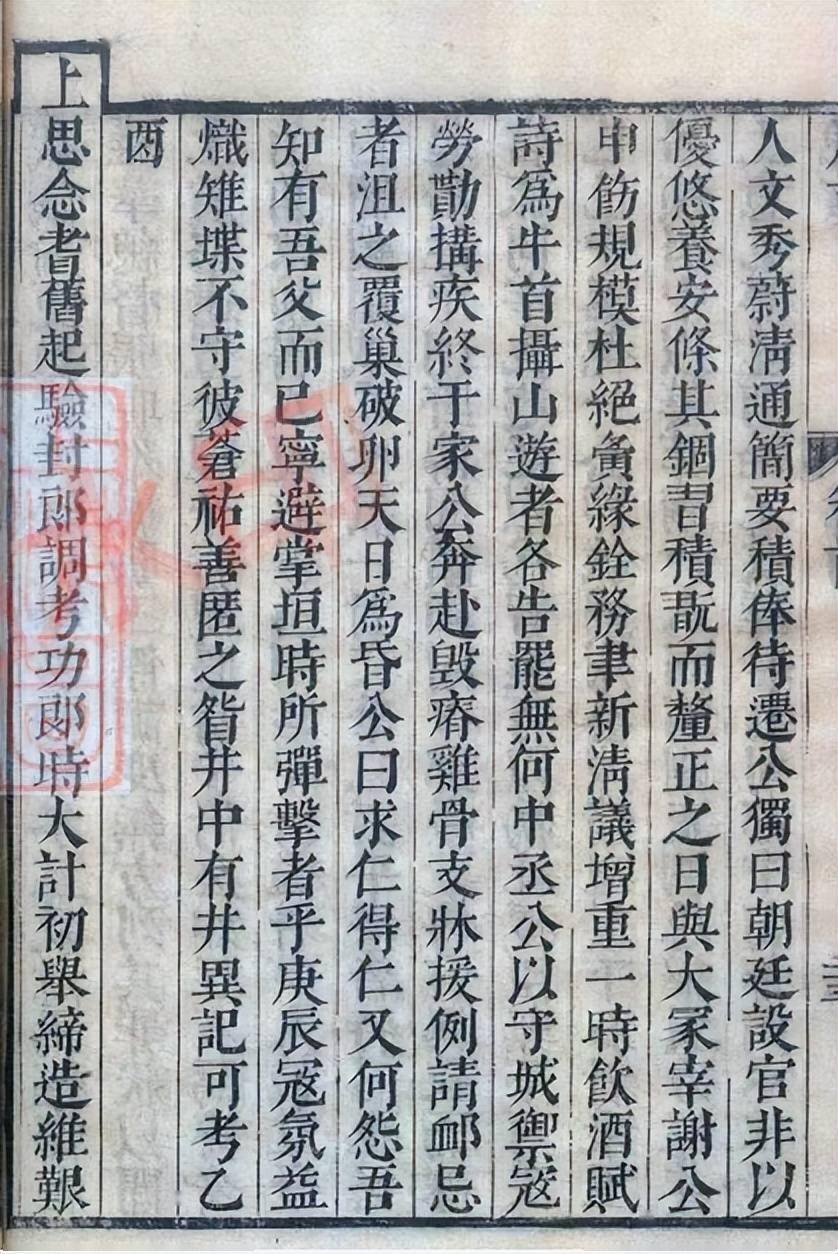 人文秀蔚淸通簡要積俸待遷公獨曰朝廷設官非以
優悠養安條其錮習積翫而釐正之日與大冢宰謝公
申飭規模杜絕夤緣銓務聿新淸議增重一時飮酒賦
詩爲牛首攝山遊者各告罷無何中丞公以守城禦寇
勞勩搆疾終于家公奔赴毀瘠雞骨支牀援例請卹忌
者沮之覆巢破卵天日爲昏公曰求仁得仁又何怨吾
知有吾父而已寧避掌垣時所彈擊者乎庚辰寇氛益
熾雉堞不守彼蒼祐善匿之眢井中有井異記可考乙
酉
上思念耆舊起驗封郞調考功郞時大計初舉締造維艱